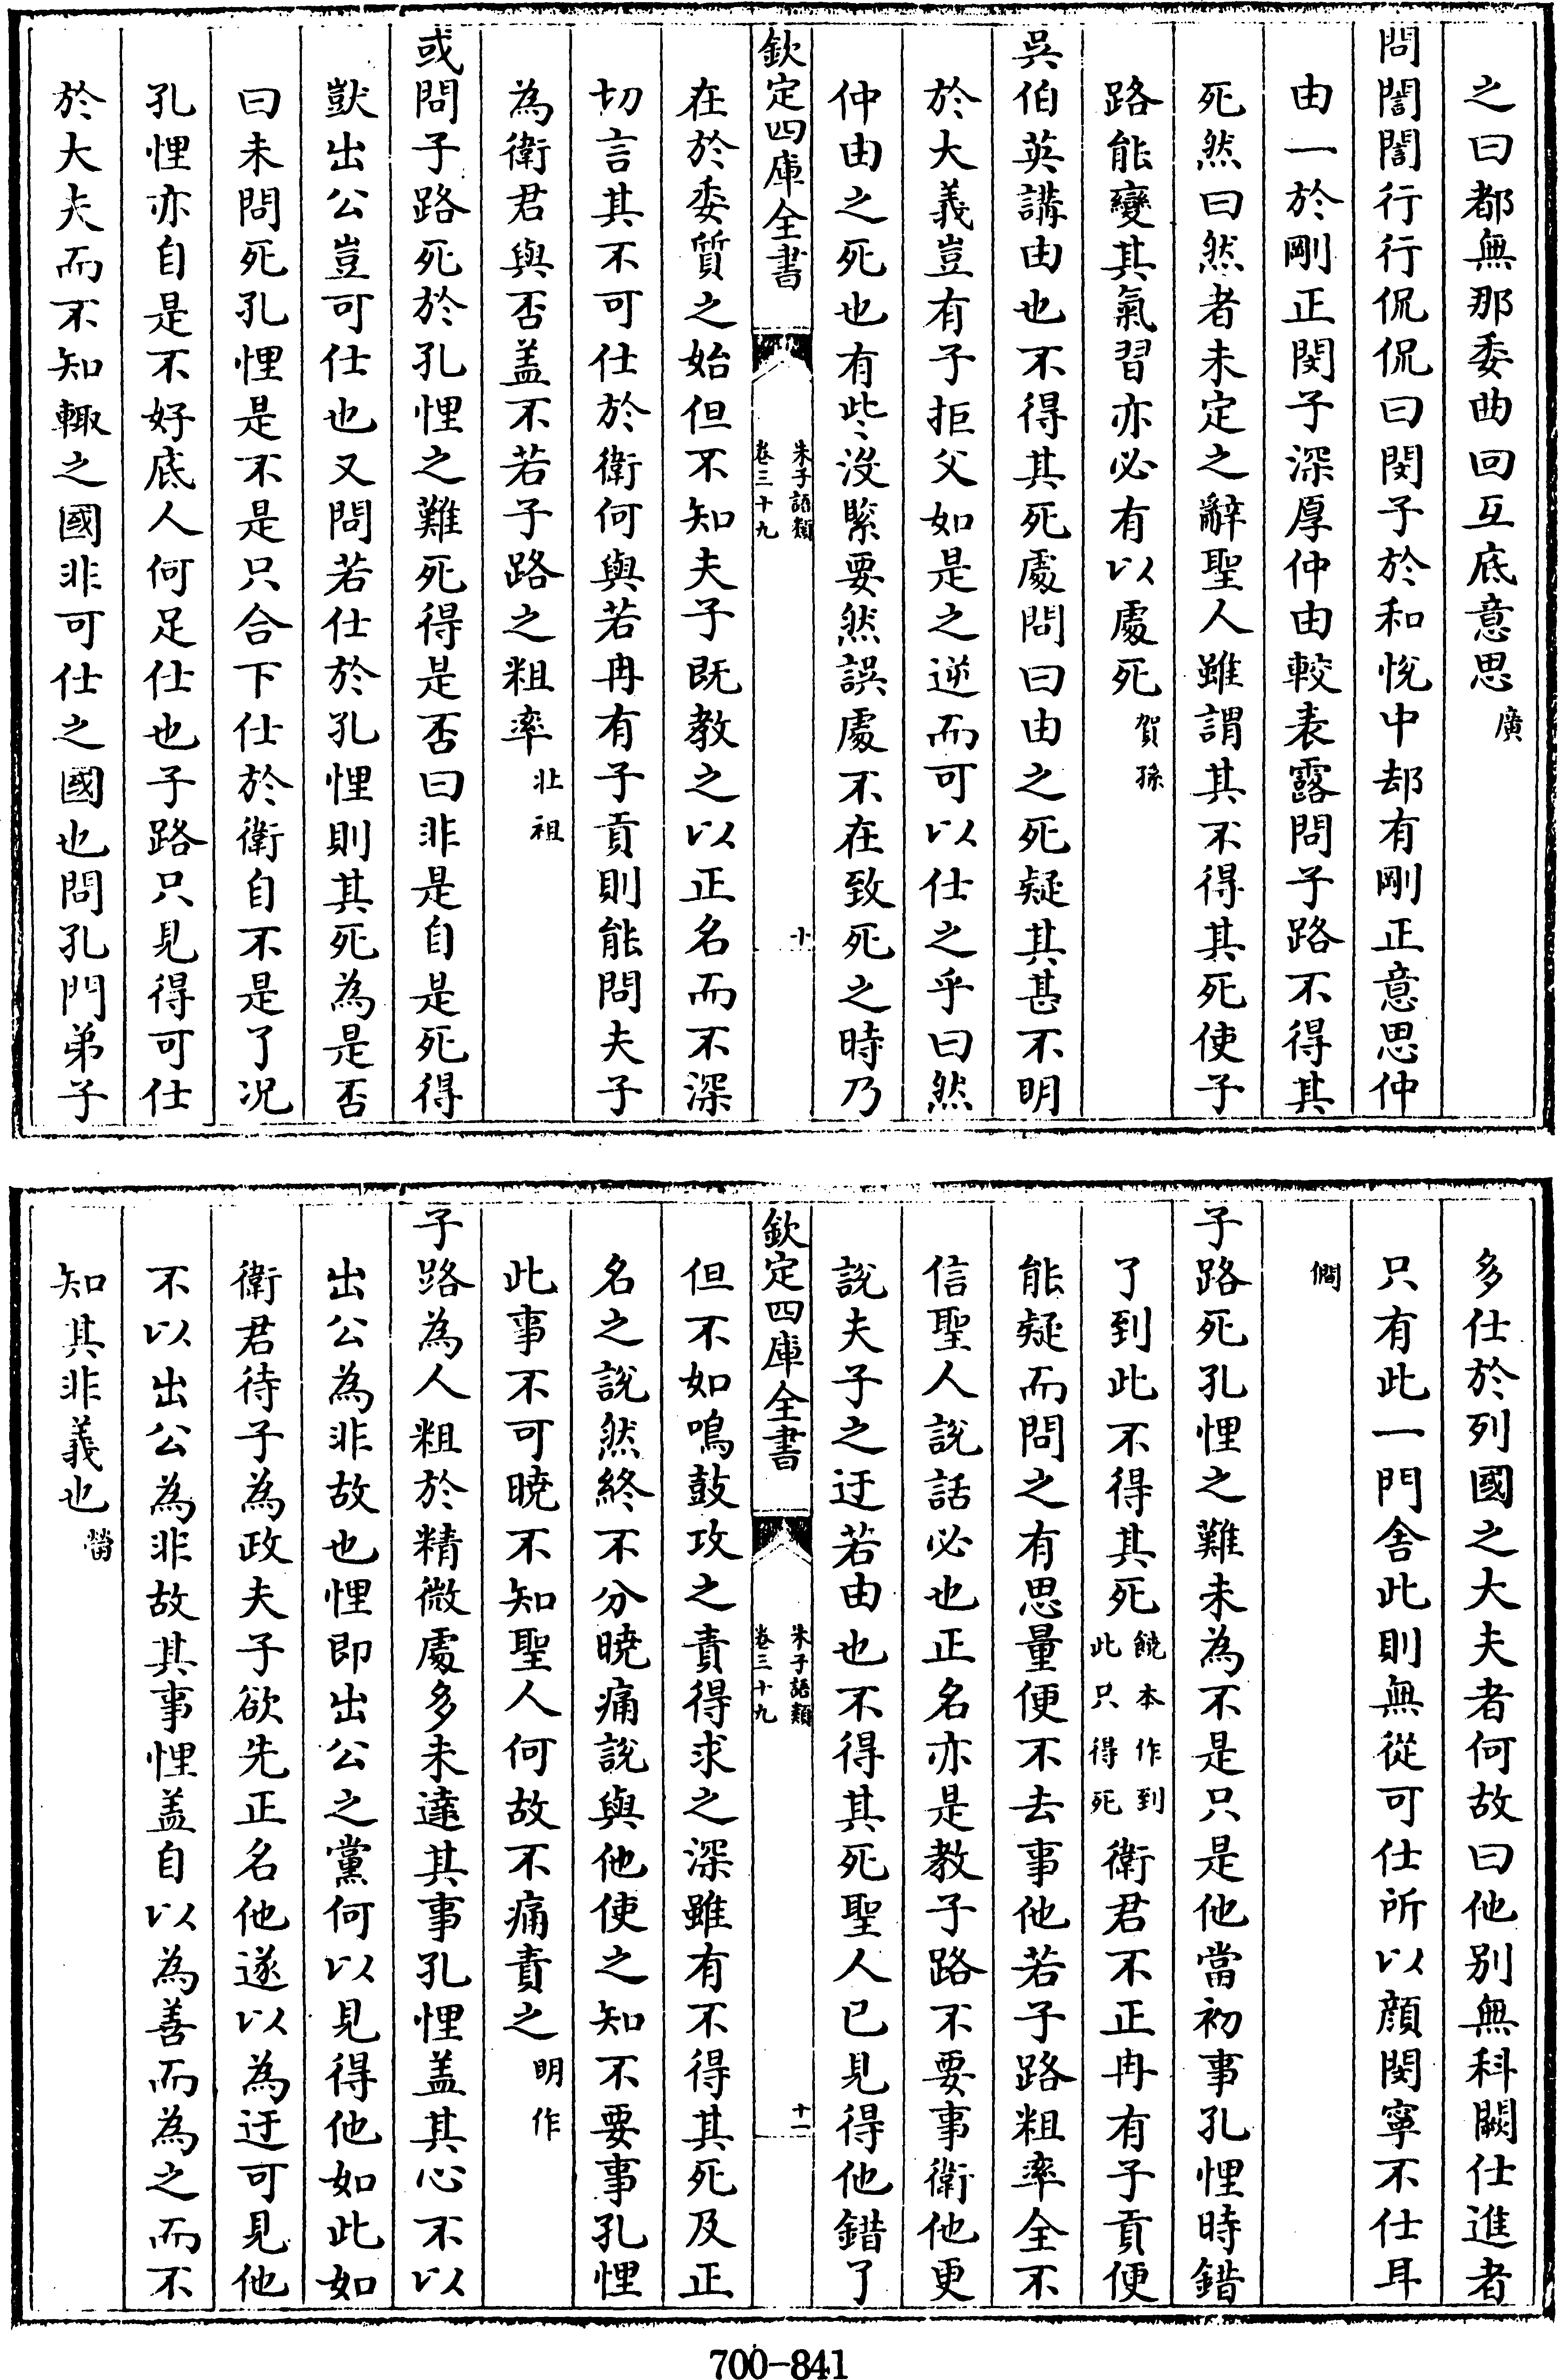 之曰都無那委曲回互底意思廣
問誾誾行行侃侃曰閔子於和悅中却有剛正意思仲
由一於剛正閔子深厚仲由較表露問子路不得其
死然曰然者未定之辭聖人雖謂其不得其死使子
路能變其氣習亦必有以處死賀孫
吳伯英講由也不得其死處問曰由之死疑其甚不明
於大義豈有子拒父如是之逆而可以仕之乎曰然
仲由之死也有些没緊要然誤處不在致死之時乃
欽定四庫全書 朱子語類卷三十九 十
在於委質之始但不知夫子既教之以正名而不深
切言其不可仕於衛何與若冉有子貢則能問夫子
為衛君與否盖不若子路之粗率壯祖
或問子路死於孔悝之難死得是否曰非是自是死得
獃出公豈可仕也又問若仕於孔悝則其死為是否
曰未問死孔悝是不是只合下仕於衛自不是了况
孔悝亦自是不好底人何足仕也子路只見得可仕
於大夫而不知輙之國非可仕之國也問孔門弟子
多仕於列國之大夫者何故曰他别無科闕仕進者
只有此一門舍此則無從可仕所以顔閔寧不仕耳
僩
子路死孔悝之難未為不是只是他當初事孔悝時錯
了到此不得其死饒本作到此只得死衛君不正冉有子貢便
能疑而問之有思量便不去事他若子路粗率全不
信聖人說話必也正名亦是教子路不要事衛他更
說夫子之迂若由也不得其死聖人已見得他錯了
欽定四庫全書 朱子語類卷三十九 十一
但不如鳴鼓攻之責得求之深雖有不得其死及正
名之說然終不分曉痛說與他使之知不要事孔悝
此事不可曉不知聖人何故不痛責之明作
子路為人粗於精微處多未達其事孔悝盖其心不以
出公為非故也悝即出公之黨何以見得他如此如
衛君待子為政夫子欲先正名他遂以為迂可見他
不以出公為非故其事悝盖自以為善而為之而不
知其非義也㽦
700-841